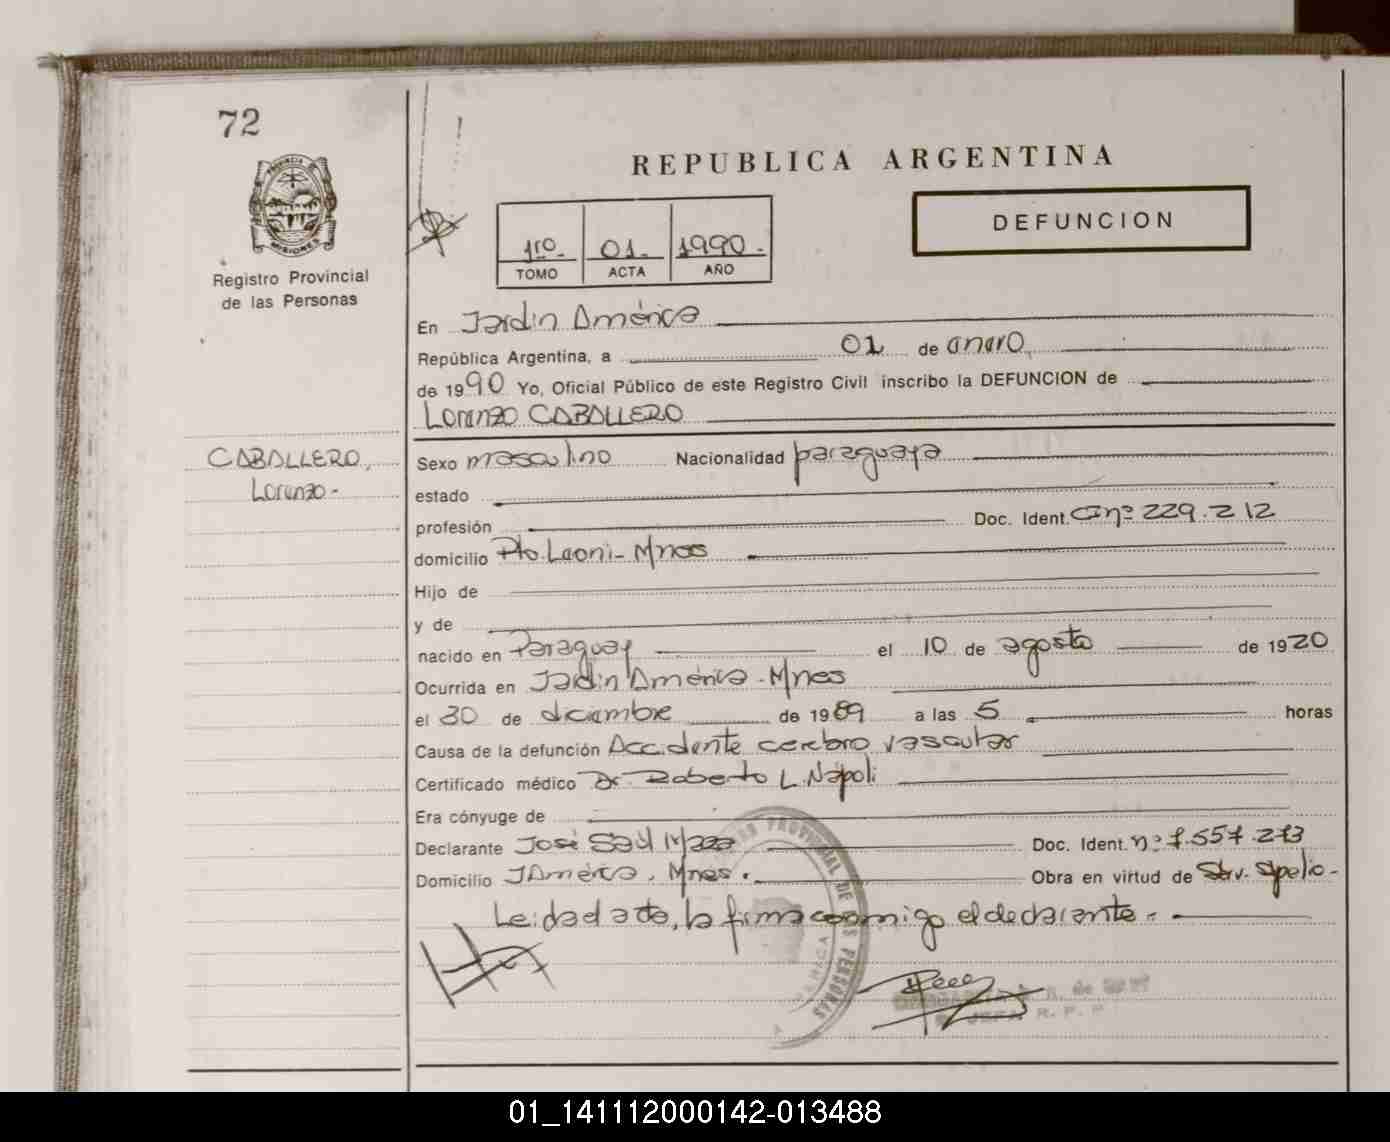 72
PROVINCIA DE
MISIONES
Registro Provincial
de las Personas
REPUBLICA ARGENTINA
DEFUNCION
1ro. 01. 1990.
TOMO ACTA AÑO
En Jardin América
República Argentina, a 01 de enero
de 1990 Yo, Oficial Público de este Registro Civil inscribo la DEFUNCION de
Lorenzo CABALLERO
CABALLERO,
Lorenzo-
Sexo masculino Nacionalidad paraguaya
estado
profesión Doc. Ident. CI nº 229.212
domicilio Pto. Leoni-Mnes
Hijo de
y de
nacido en Paraguay el 10 de agosto de 1920
Ocurrida en Jardin América-Mnes
el 30 de diciembre de 1989 a las 5 horas
Causa de la defunción Accidente cerebro vascular
Certificado médico Dr. Roberto L. Nápoli
Era cónyuge de
Declarante José Saúl Maza Doc. Ident. nº 7.557.273
Domicilio J América, Mnes. Obra en virtud de Srv. Spelio-
Leida el acta, la firma conmigo el declarante.
REGISTRO PROVINCIAL DE LAS PERSONAS
JEFA R. P. P.
01_141112000142-013488